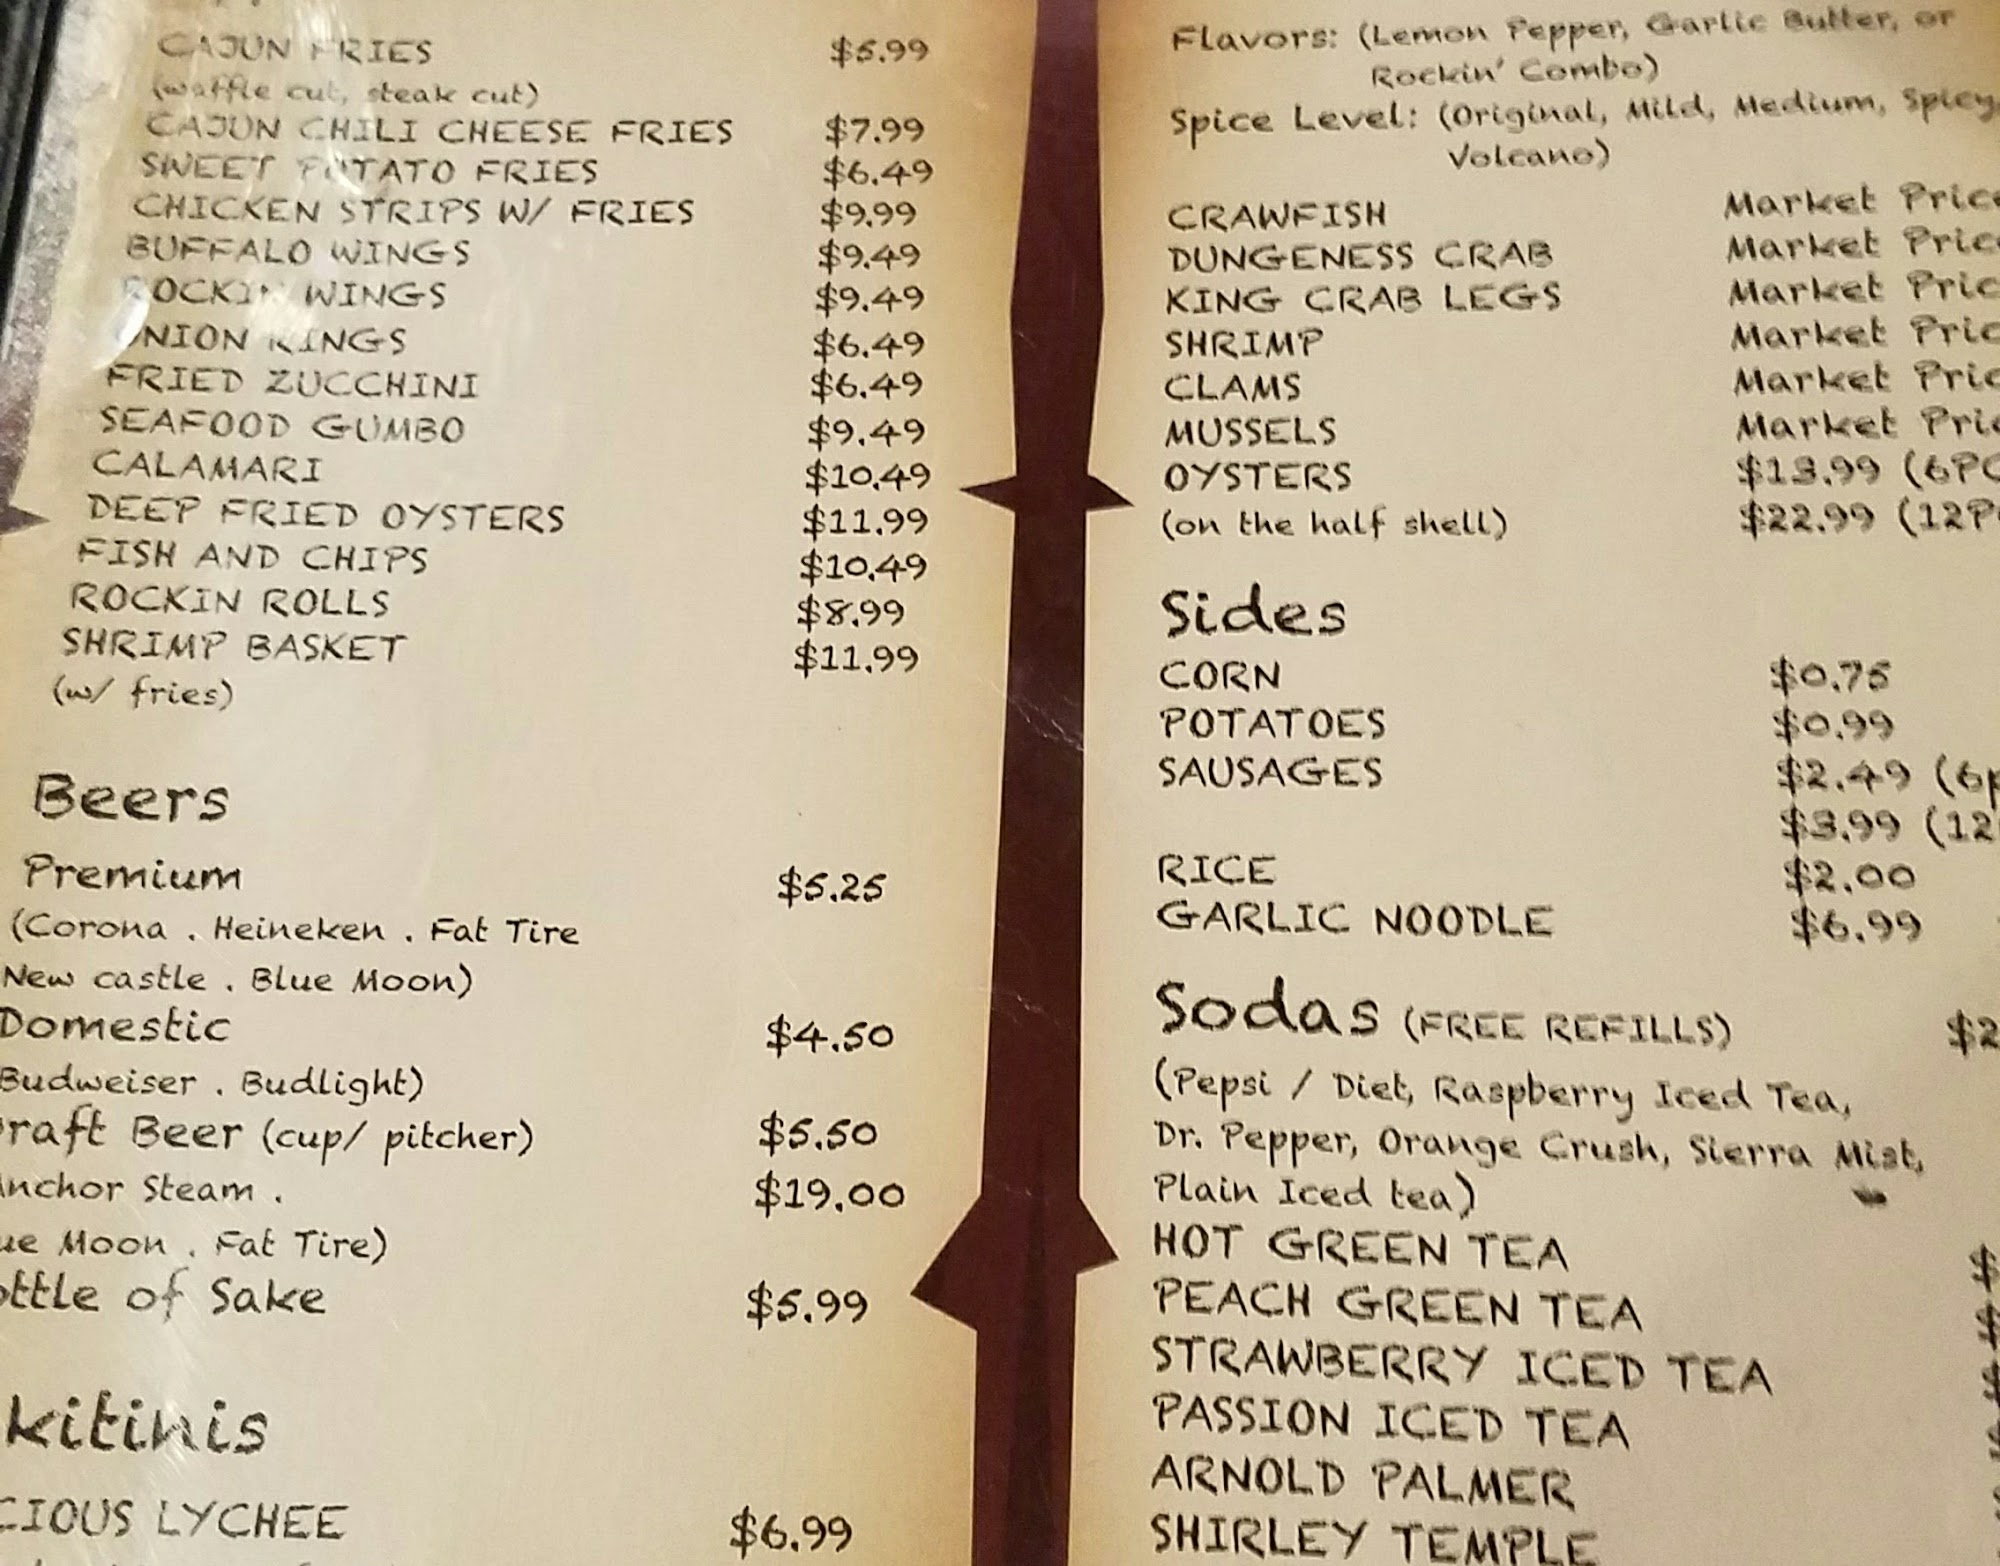 CAJUN FRIES $5.99
(waffle cut, steak cut)
CAJUN CHILI CHEESE FRIES $7.99
SWEET POTATO FRIES $6.49
CHICKEN STRIPS W/ FRIES $9.99
BUFFALO WINGS $9.49
ROCKIN' WINGS $9.49
ONION RINGS $6.49
FRIED ZUCCHINI $6.49
SEAFOOD GUMBO $9.49
CALAMARI $10.49
DEEP FRIED OYSTERS $11.99
FISH AND CHIPS $10.49
ROCKIN ROLLS $8.99
SHRIMP BASKET $11.99
(w/ fries)
Beers
Premium $5.25
(Corona . Heineken . Fat Tire
New castle . Blue Moon)
Domestic $4.50
Budweiser . Budlight)
raft Beer (cup/ pitcher) $5.50
nchor Steam . $19.00
ue Moon . Fat Tire)
ottle of Sake $5.99
kitinis
CIOUS LYCHEE $6.99
Flavors: (Lemon Pepper, Garlic Butter, or
Rockin' Combo)
Spice Level: (Original, Mild, Medium, Spicy,
Volcano)
CRAWFISH Market Price
DUNGENESS CRAB Market Price
KING CRAB LEGS Market Pric
SHRIMP Market Pric
CLAMS Market Pric
MUSSELS Market Pric
OYSTERS $13.99 (6PC
(on the half shell) $22.99 (12P
Sides
CORN $0.75
POTATOES $0.99
SAUSAGES $2.49 (6p
$3.99 (12
RICE $2.00
GARLIC NOODLE $6.99
Sodas (FREE REFILLS) $2
(Pepsi / Diet, Raspberry Iced Tea,
Dr. Pepper, Orange Crush, Sierra Mist,
Plain Iced tea)
HOT GREEN TEA $
PEACH GREEN TEA $
STRAWBERRY ICED TEA $
PASSION ICED TEA $
ARNOLD PALMER
SHIRLEY TEMPLE